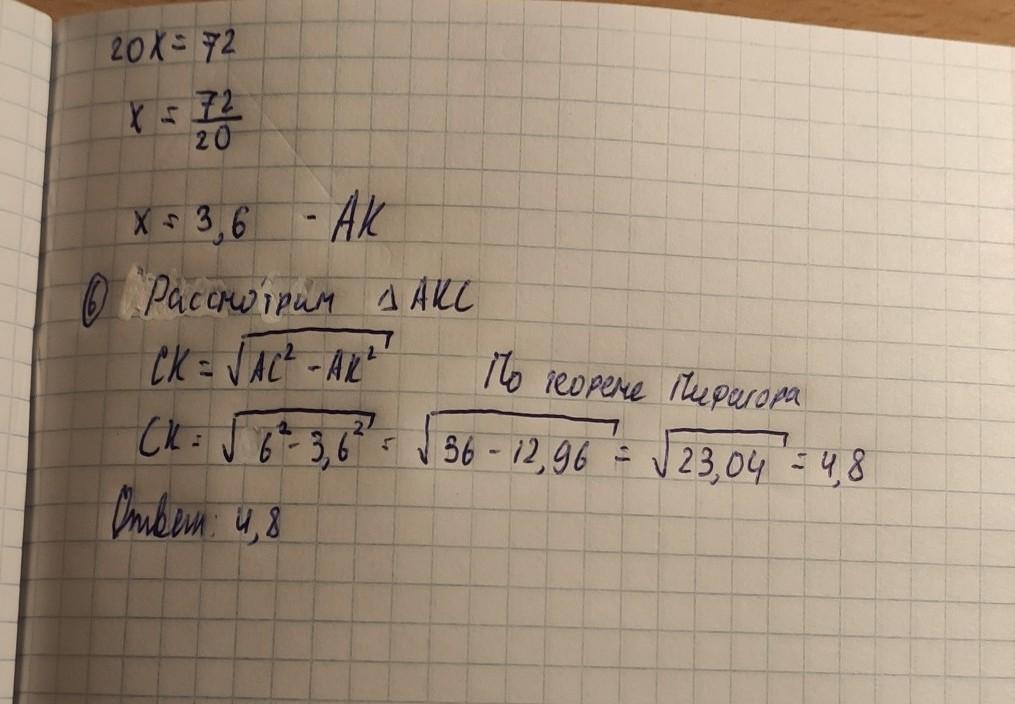 20x = 72
x = 72/20
x = 3,6 - AK
⑥ Рассмотрим △ AKC
CK = √AC² - AK² По теореме Пифагора
CK = √6² - 3,6² = √36 - 12,96 = √23,04 = 4,8
Ответ: 4,8